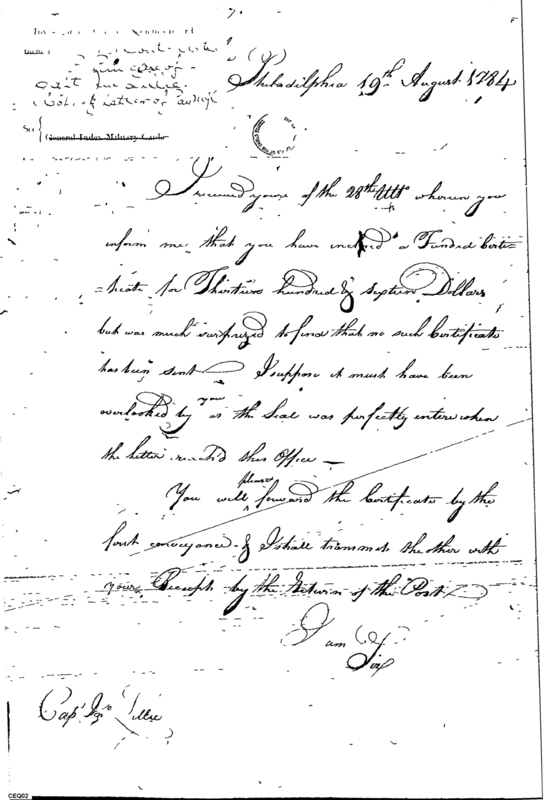 Philadilphia 19th August 1784
I received yours of the 28th Ulto wherein you
inform me that you have inclosed a Funded Certi=
=ficate for Thirteen hundred & sixteen Dollars
but was much surprized to find that no such Certificate
has been sent I suppose it must have been
overlooked by you as the Seal was perfectly entire when
the letter reach'd this Office —
You will please forward the Certificate by the
first conveyance & I shall transmit the other with
your Receipt by the Return of the Post
I am
Sir
Capt Jno Lillie
General Index Military Cards
CEQ02